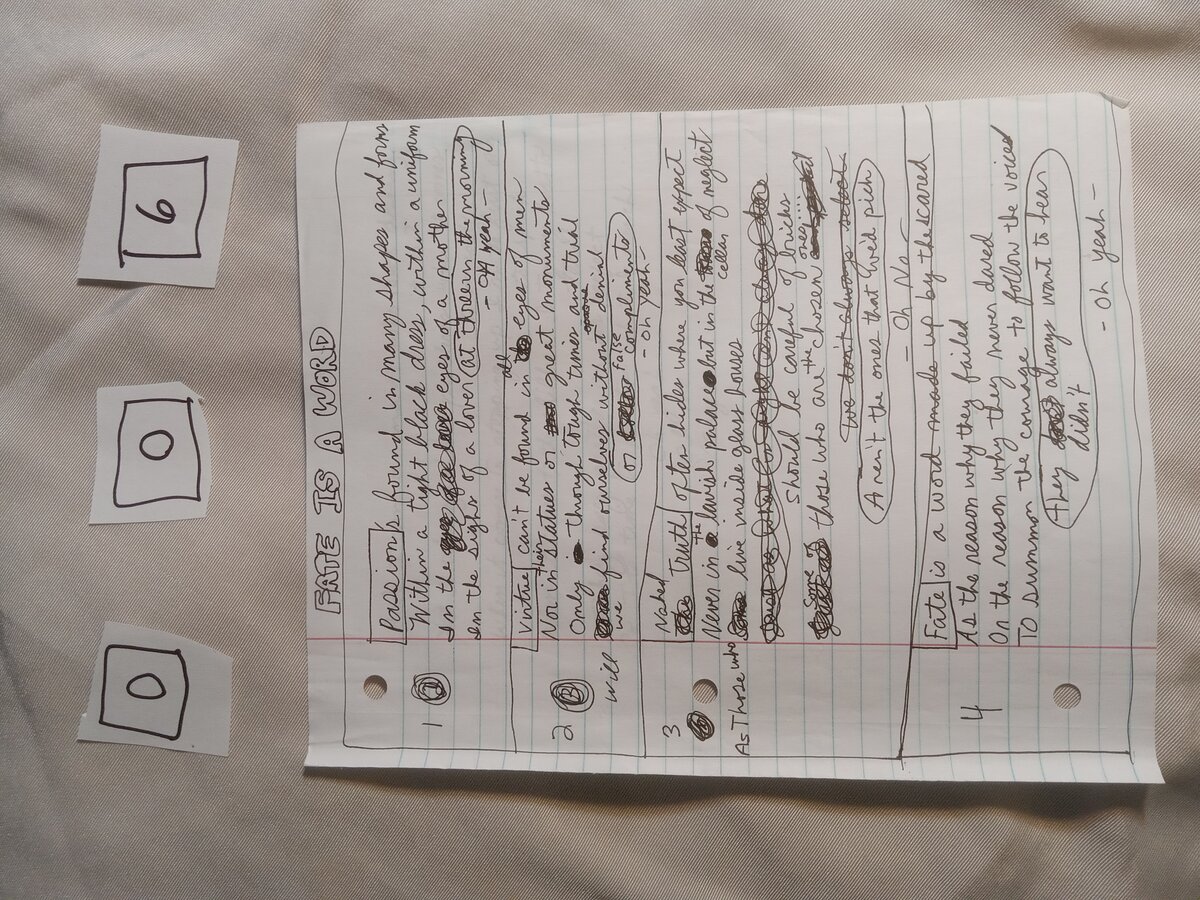 0
0
6
FATE IS A WORD
1
Passion's found in many shapes and forms
Within a tight black dress, within a uniform
In the eyes of a mother
In the sighs of a lover at three in the morning
- oh yeah -
2
B
Virtue can't be found in the eyes of men
Nor in their statues or great monuments
Only though tough times and trial
will we find ourselves without denial
or false compliments
- oh yeah -
3
Naked Truth often hides where you least expect
Never in the lavish palace but in the cellar of neglect
As Those who live inside glass houses
should be careful of bricks
Some of those who are the chosen ones...
we don't always select
Aren't the ones that we'd pick
- Oh No -
4
Fate is a word made up by the scared
As the reason why they failed
Or the reason why they never dared
To summon the courage to follow the voices
They didn't always want to hear
- oh yeah -